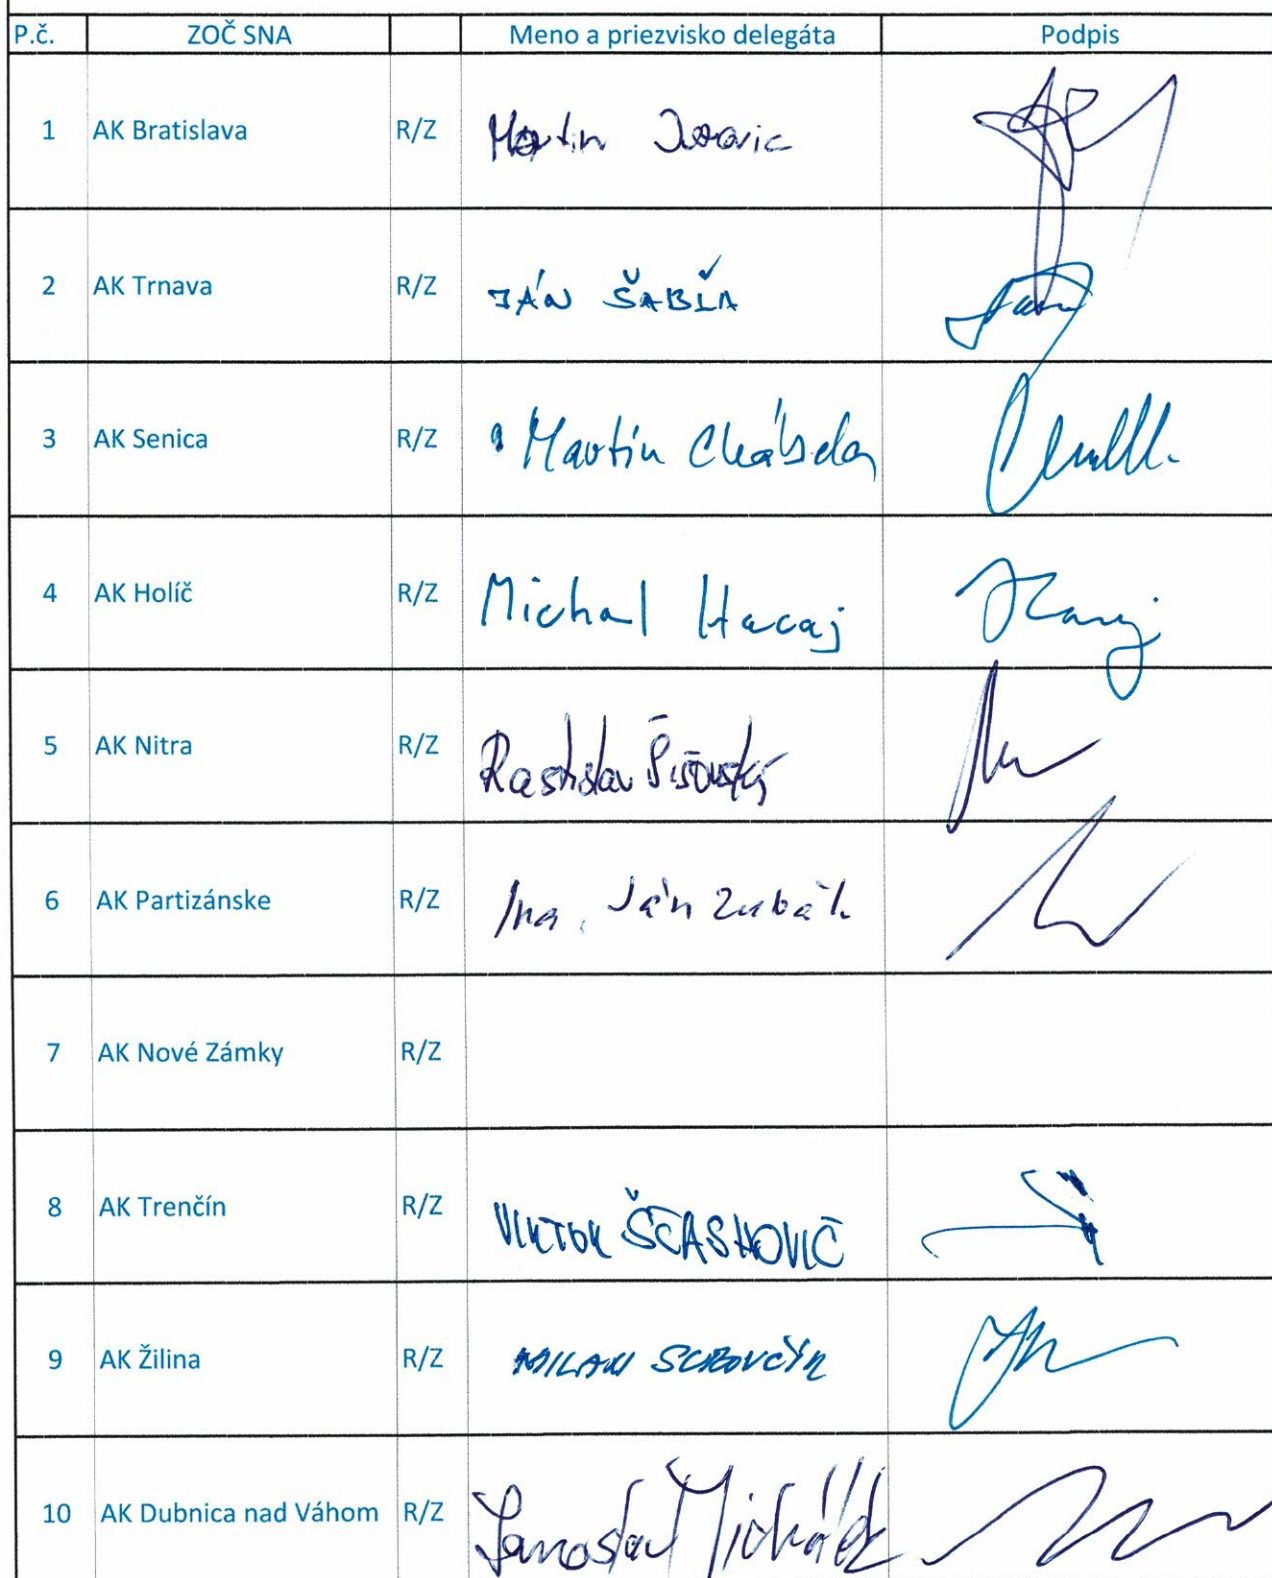 P.č. ZOČ SNA Meno a priezvisko delegáta Podpis
1 AK Bratislava R/Z Martin
2 AK Trnava R/Z JÁN ŠABĽA
3 AK Senica R/Z Martin Chábela
4 AK Holíč R/Z Michal Hacaj
5 AK Nitra R/Z Rastislav Šišovský
6 AK Partizánske R/Z Ing. Ján Zubák
7 AK Nové Zámky R/Z
8 AK Trenčín R/Z VIKTOR ŠČASNOVIČ
9 AK Žilina R/Z MILAN
10 AK Dubnica nad Váhom R/Z Jaroslav Michálek